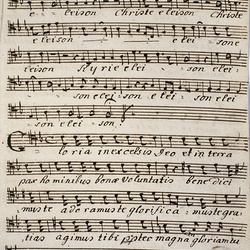 eleison Christe eleison Christe
eleison - - e lei - sone
leison Kyrie elei - - son
son elei - son e lei - son elei
son elei - son
Gloria in excelsis Deo et in terra
pax hominibus bonæ voluntatis bene dici
muste ade ramuste glorifica - mustegra
tias agimus tibi ppter magna gloriamtu